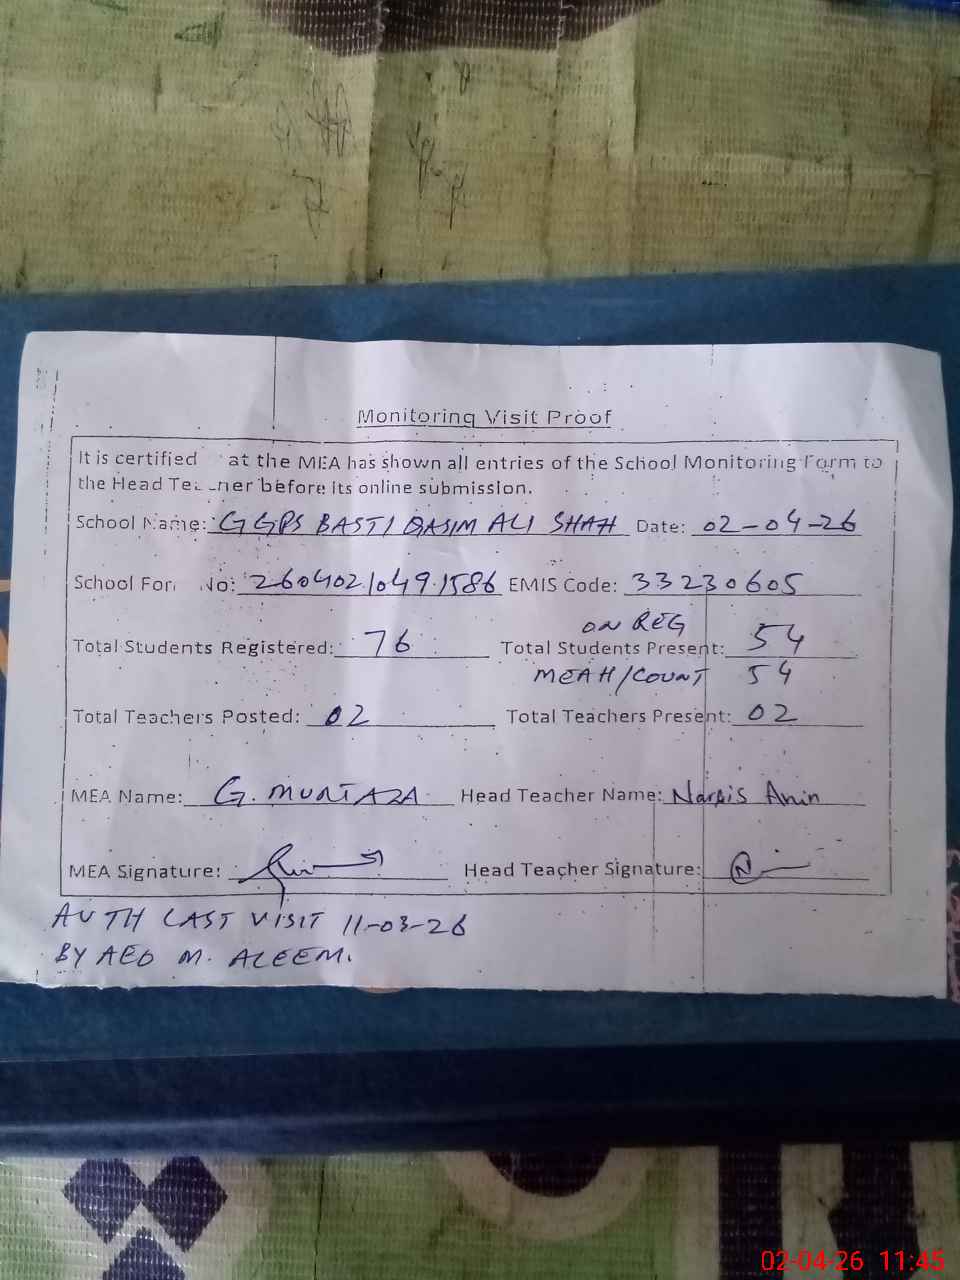 Monitoring Visit Proof
It is certified at the MEA has shown all entries of the School Monitoring Form to
the Head Te ner before its online submission.
School Name: GGPS BASTI QASIM ALI SHAH Date: 02-04-26
School For No: 260402.1049.1586 EMIS Code: 33230605
ON REG
Total Students Registered: 76 Total Students Present: 54
MEA H/COUNT 54
Total Teachers Posted: 02 Total Teachers Present: 02
MEA Name: G. MURTAZA Head Teacher Name: Nargis Amin
MEA Signature: Head Teacher Signature:
AUTH LAST VISIT 11-03-26
BY AEO M. ALEEM.
02-04-26 11:45